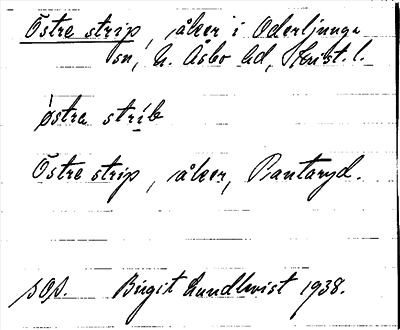 Östre strip, åker i Oderljunga
sn, N. Åsbo hd, Krist. l.
østra strib
Östre strip, åker, Pantaryd.
sop. Birgit Lundkvist 1938.